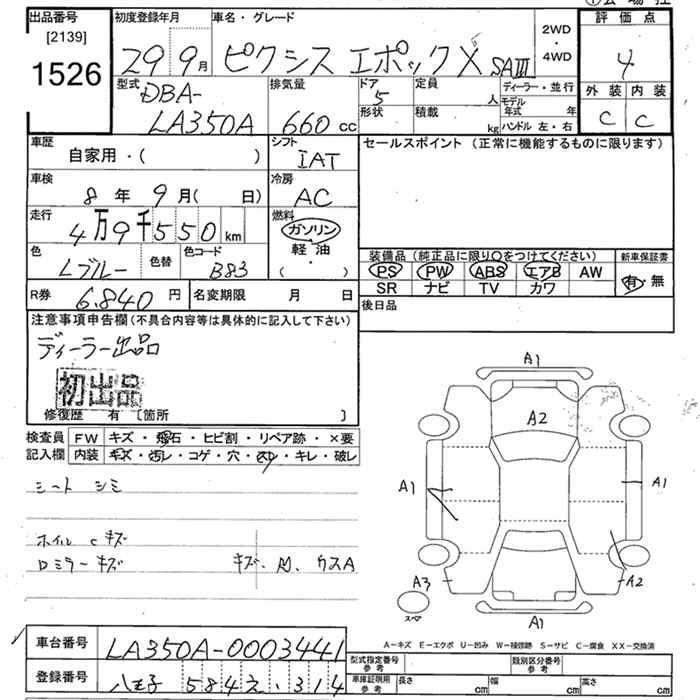 出品番号 初度登録年月 車名・グレード 2WD・4WD 評価点
[2139]
1526 29 9月 ピクシス エポック X SAⅢ 4
型式 DBA- 排気量 ドア 5 定員 人 ディーラー・並行 外装 内装
LA350A 660 cc 形状 積載 kg モデル年式 年 C C
ハンドル 左・右
車歴 自家用・( ) シフト IAT セールスポイント (正常に機能するものに限ります)
車検 8年 9月( 日) 冷房 AC
走行 4万9千550 km 燃料 ガソリン
軽油・( )
色 Lブルー 色替 色コード B83
装備品 (純正品に限り○をつけてください) 新車保証書
PS PW ABS エアB AW 有・無
SR ナビ TV カワ
R券 6,840 円 名変期限 月 日 後日品
注意事項申告欄 (不具合内容等は具体的に記入して下さい)
ディーラー出品
初出品
修復歴 有 [箇所 ]
検査員 FW キズ・飛石・ヒビ割・リペア跡・×要
記入欄 内装 キズ・汚レ・コゲ・穴・スレ・キレ・破レ
シート シミ
ホイル C キズ
ロミラー キズ キズ・凹、ウスA
A1
A2
A1 A1
A3 A2
スペア A1
A-キズ E-エクボ U-凹み W-補修跡 S-サビ C-腐食 XX-交換済
車台番号 LA350A-0003441 型式指定番号 参考 類別区分番号 参考
登録番号 八王子 584 え・314 車庫証明用 参考 長さ cm 幅 cm 高さ cm